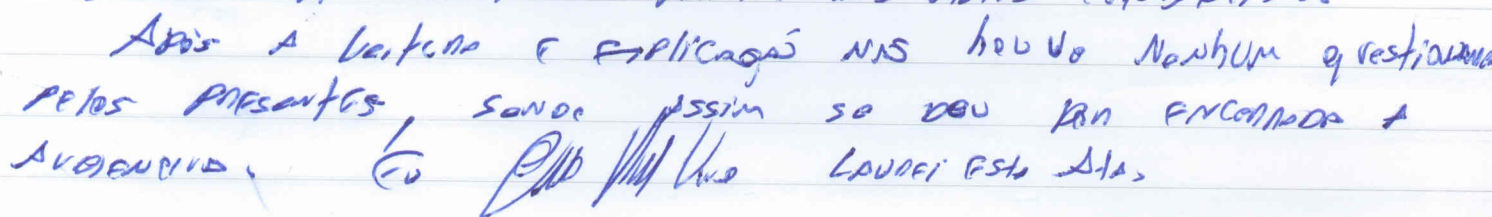 Após A Leitura E Explicação não houve Nenhum questionamento
Pelos Presentes, sendo Assim se deu por Encerrada A
Audiencia. Eu Lavrei Esta Ata.